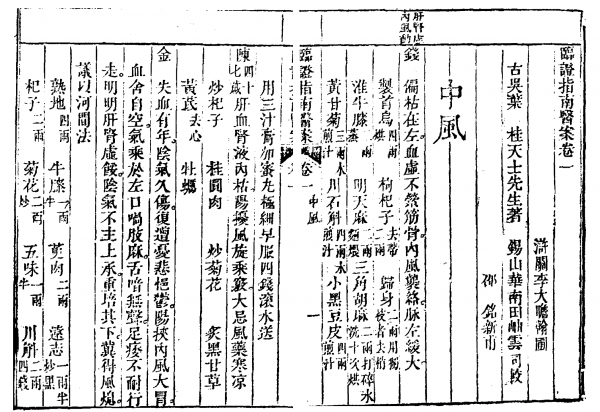 臨證指南醫案卷一
滸關李大瞻翰圃
古吳葉 桂天士先生著 錫山華南田岫雲司較
邵 銘新甫
中風
肝腎虛內風動
錢 偏枯在左血虛不榮筋骨內風襲絡脉左緩大
製首烏四兩烘 枸杞子去蒂二兩 歸身二兩用獨枝者去梢
淮牛膝二兩蒸 明天麻二兩麵煨 三角胡麻二兩打碎水洗十次烘
黃甘菊三兩水煎汁 川石斛四兩水煎汁 小黑豆皮四兩煎汁
臨證指南醫案 卷一 中風 一
用三汁膏加蜜丸極細早服四錢滾水送
陳四十七歲 肝血腎液內枯陽擾風旋乘竅大忌風藥寒涼
炒杞子 桂圓肉 炒菊花 炙黑甘草
黃芪去心 牡蠣
金 失血有年陰氣久傷復遭憂悲悒鬱陽挾內風大冒
血舍自空氣乘於左口喎肢麻舌喑無聲足痿不耐行
走明明肝腎虛餒陰氣不主上承重培其下冀得風熄
議以河間法
熟地四兩 牛膝一兩半 萸肉二兩 遠志一兩半炒黑
杞子二兩 菊花二兩炒 五味一兩半 川斛二兩四錢